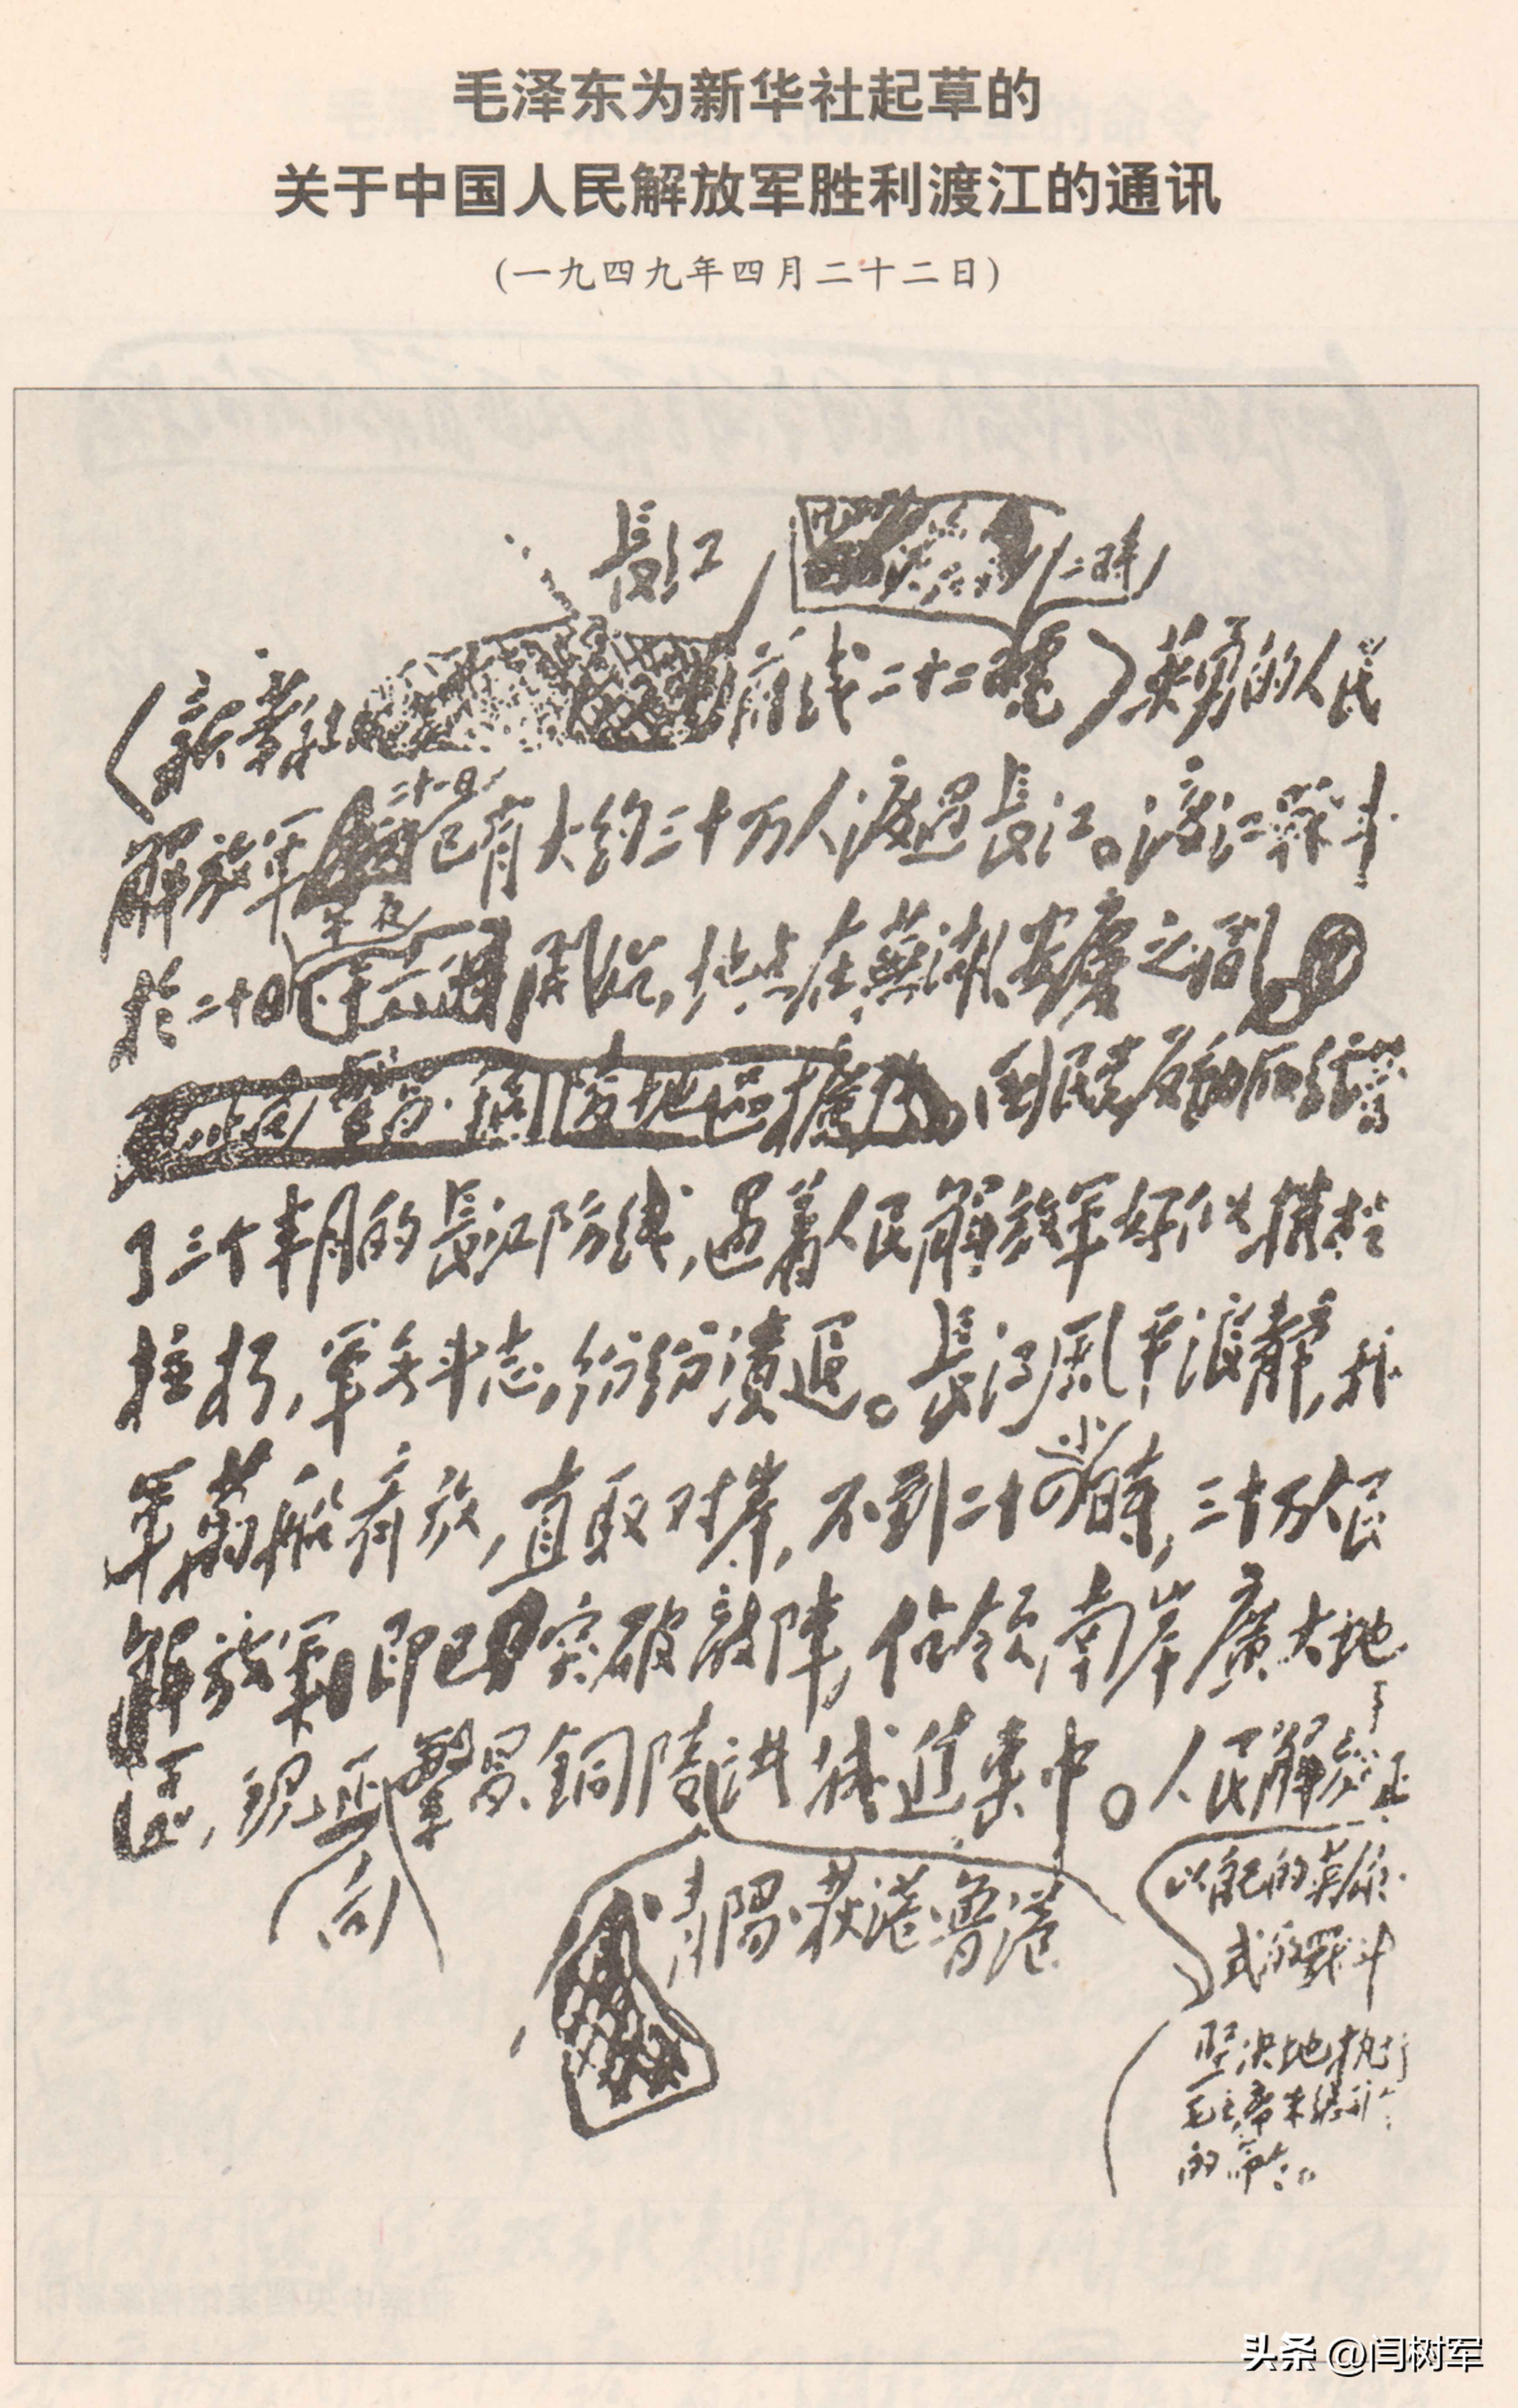 毛泽东为新华社起草的
关于中国人民解放军胜利渡江的通讯
(一九四九年四月二十二日)
長江
二時
(新華社 前线二十二日電)英勇的人民
二十一日
解放军 已有大约三十万人渡过長江。渡江战斗
午夜
於二十日 開始,地点在蕪湖、安慶之间。
国民党反动派经营
了三个半月的長江防线,遇着人民解放军好似摧枯
拉朽,军无斗志,纷纷溃退。長江风平浪静,我
小
军万船齐放,直取对岸,不到二十四時,三十万人民
解放军即已突破敵陣,佔领南岸廣大地
區,现正 繁昌、銅陵 洪城進集中。人民解放军
向
青陽、荻港、魯港
以自己的英雄
式的戰斗
坚决地执行
毛主席朱總司令
的命令。
头条 @闫树军